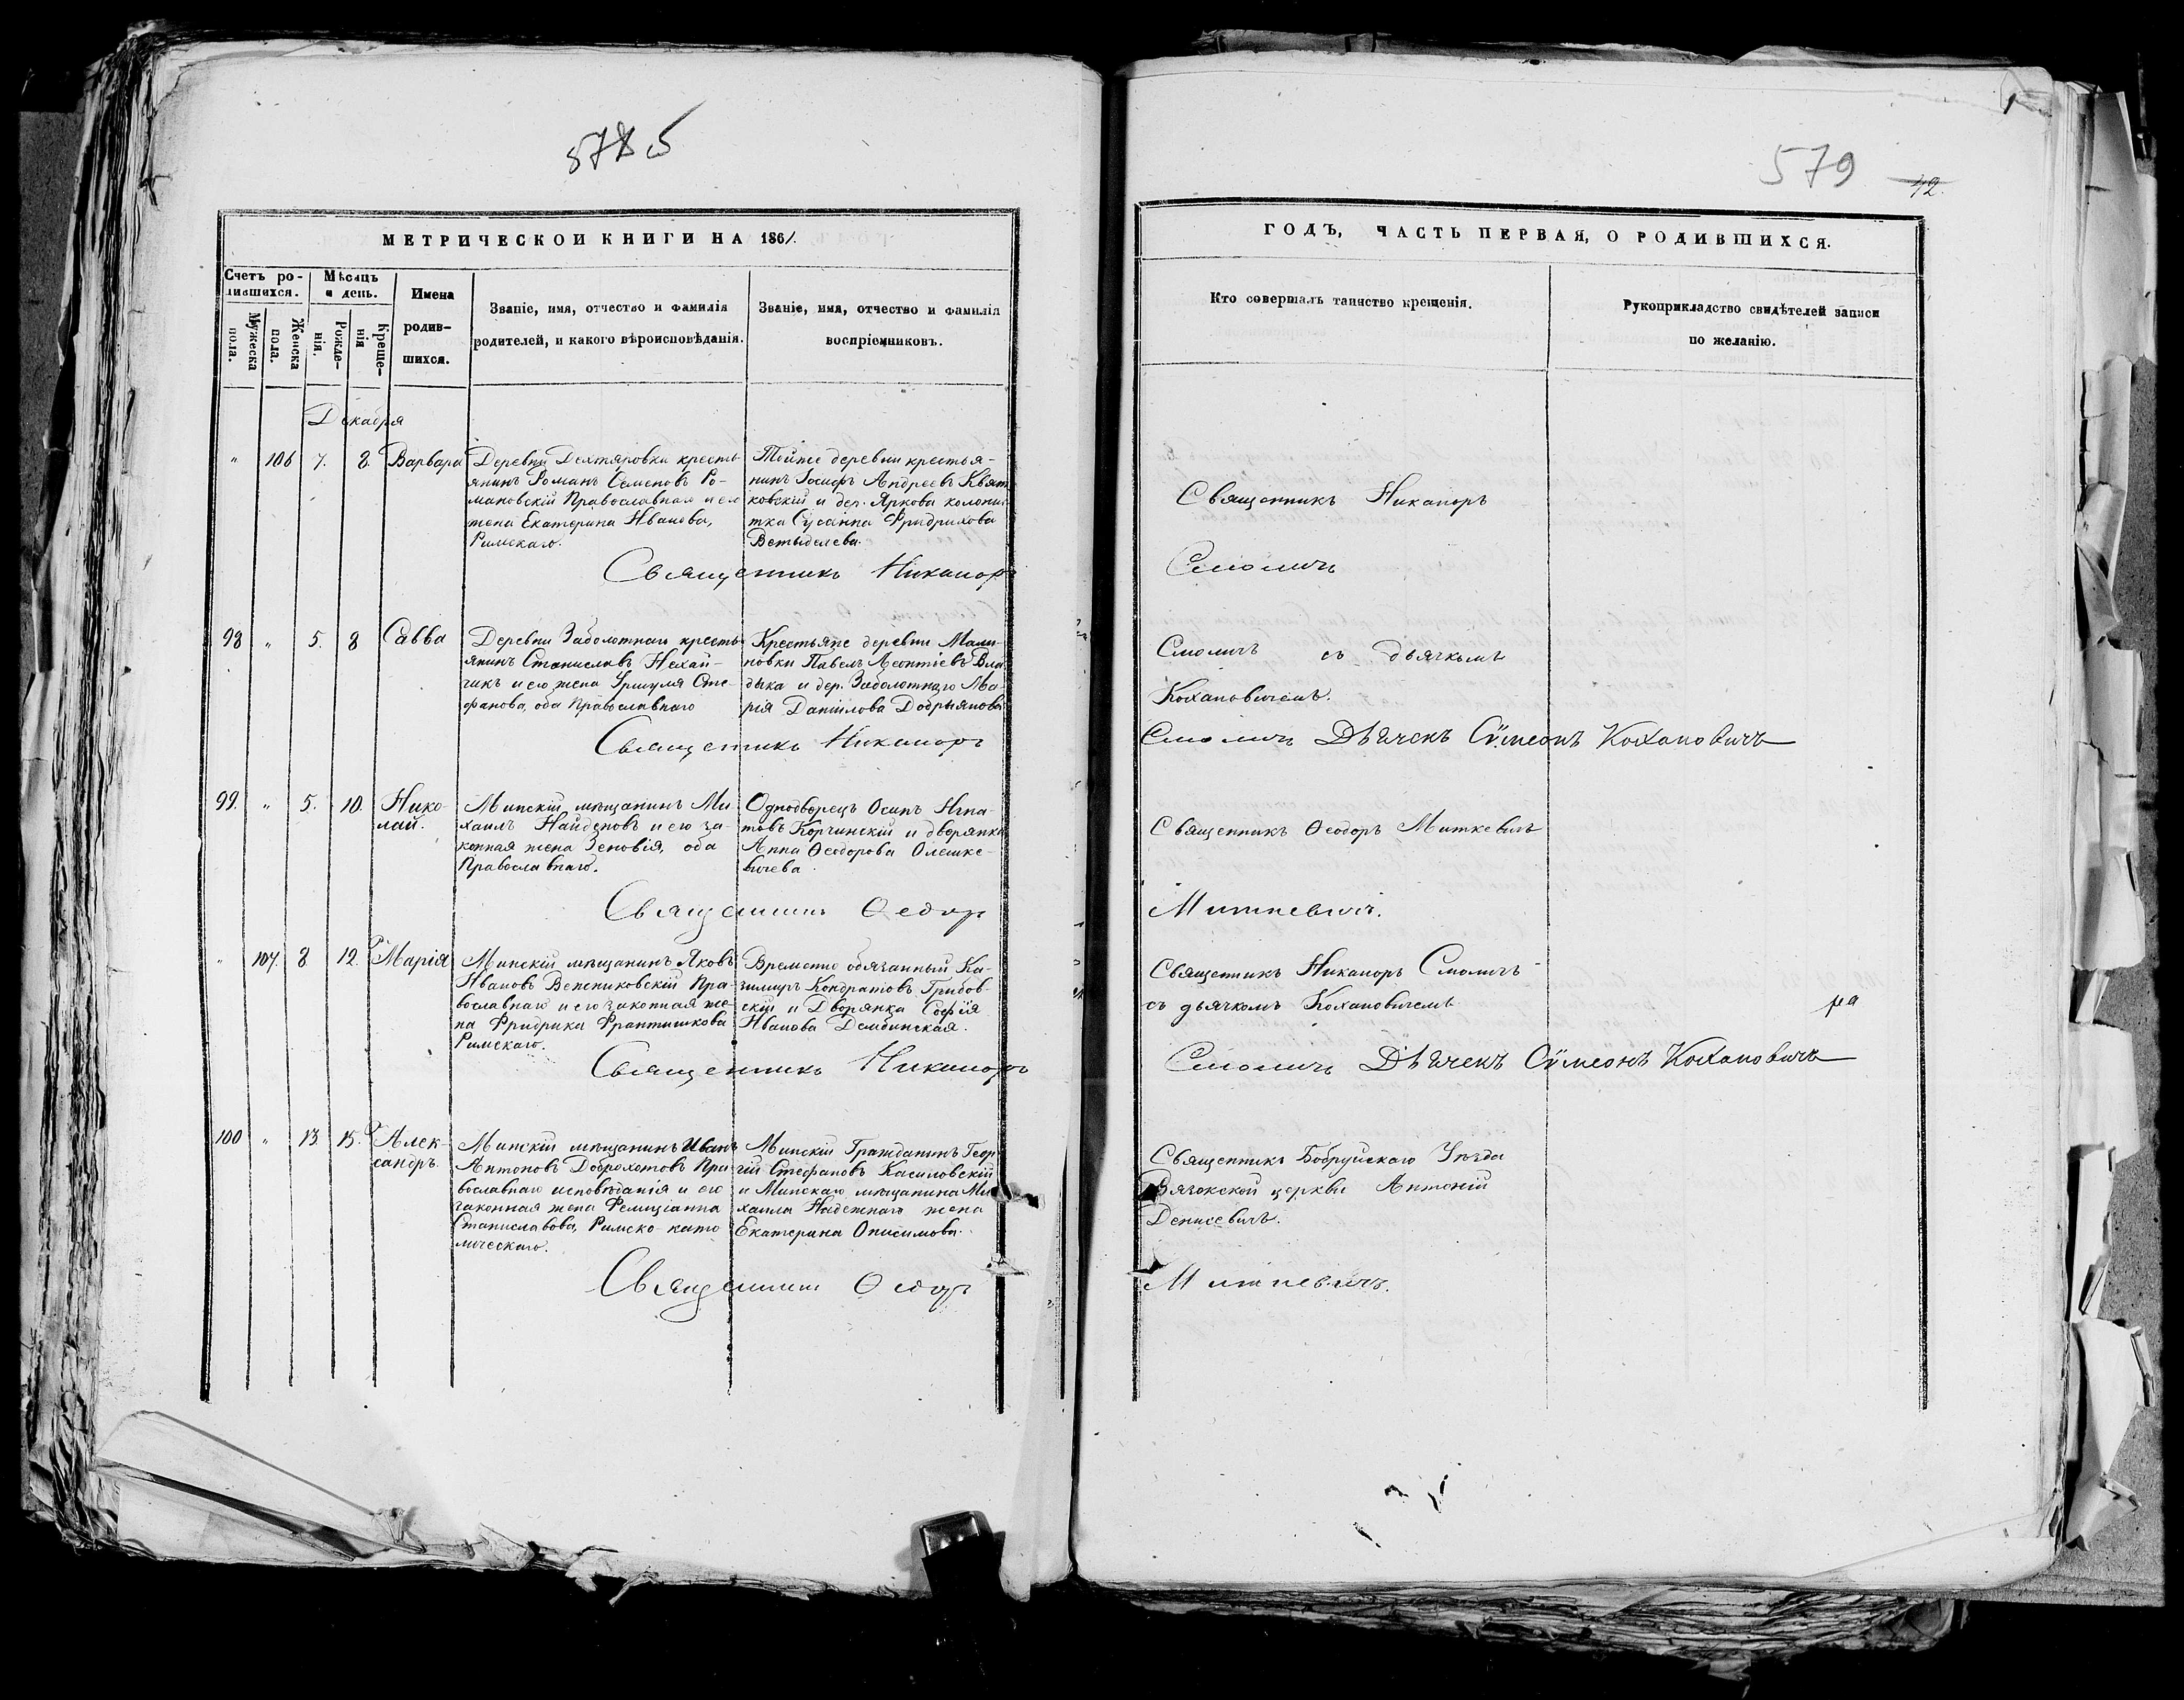 5785
МЕТРИЧЕСКОЙ КНИГИ НА 1861.
Счетъ ро-
дившихся.
Мѣсяцъ
и день.
Мужеска
пола.
Женска
пола.
Рожде-
нія.
Креще-
нія
Имена
родив-
шихся.
Званіе, имя, отчество и фамилія
родителей, и какого вѣроисповѣданія.
Званіе, имя, отчество и фамилія
воспріемниковъ.
Декабря
" 106 7. 8. Варвара
Деревни Дехтяровки кресть-
янинъ Романъ Семеновъ Ро-
мановскій Православнаго и его
жена Екатерина Иванова,
Римскаго.
Тойже деревни крестья-
нинъ Іосифъ Андреевъ Квят-
ковскій и дер. Яркова колонис-
тка Сусанна Фридрихова
Священникъ Никаноръ
98 " 5. 8 Савва
Деревни Заболотнаго кресть-
янинъ Станиславъ Нехай-
чикъ и его жена Уршуля Сте-
фанова, оба Православнаго
Крестьяне деревни Мали-
новки Павелъ Леонтіевъ Вла-
дыка и дер. Заболотнаго Ма-
рія Даниилова Добрыянова
Священникъ Никаноръ
99. " 5. 10. Нико-
лай.
Минскій мѣщанинъ Ми-
хаилъ Найденовъ и его за-
конная жена Зеновія, оба
Православнаго.
Однодворецъ Осипъ Игна-
товъ Корчинскій и дворянка
Анна Ѳеодорова Олешке-
вичева
Священникъ Ѳеодоръ
" 107. 8 12. Марія
Минскій мѣщанинъ Яковъ
Ивановъ Венсниковскій Пра-
вославнаго и его законная же-
на Фридрика Франтишкова
Римскаго.
Временно обязанный Ка-
зимиръ Кондратовъ Грибов-
скій и Дворянка Софія
Иванова Дембинская.
Священникъ Никаноръ
100 " 13. 15. Алек-
сандръ.
Минскій мѣщанинъ Иванъ
Антоновъ Доброхотовъ Пра-
вославнаго исповѣданія и его
законная жена Фелиціанна
Станиславова, Римско-като-
лическаго.
Минскій Гражданинъ Геор-
гій Стефановъ Касиловскій
и Минскаго мѣщанина Ми-
хаила Надежнаго жена
Екатерина Онисимова.
Священникъ Ѳеодоръ
579 42.
ГОДЪ, ЧАСТЬ ПЕРВАЯ, О РОДИВШИХСЯ.
Кто совершалъ таинство крещенія.
Рукоприкладство свидѣтелей записи
по желанію.
Священникъ Никаноръ
Смоличъ
Смоличъ съ дьячкомъ
Кохановичемъ.
Смоличъ Дьячекъ Сѵмеонъ Кохановичъ
Священникъ Ѳеодоръ Миткевичъ
Миткевичъ.
Священникъ Никаноръ Смоличъ
съ дьячкомъ Кохановичемъ
ра
Смоличъ Дьячекъ Сѵмеонъ Кохановичъ
Священникъ Бобруйскаго Уѣзда
Вязокской церкви Антоній
Денисевичъ.
Миткевичъ.